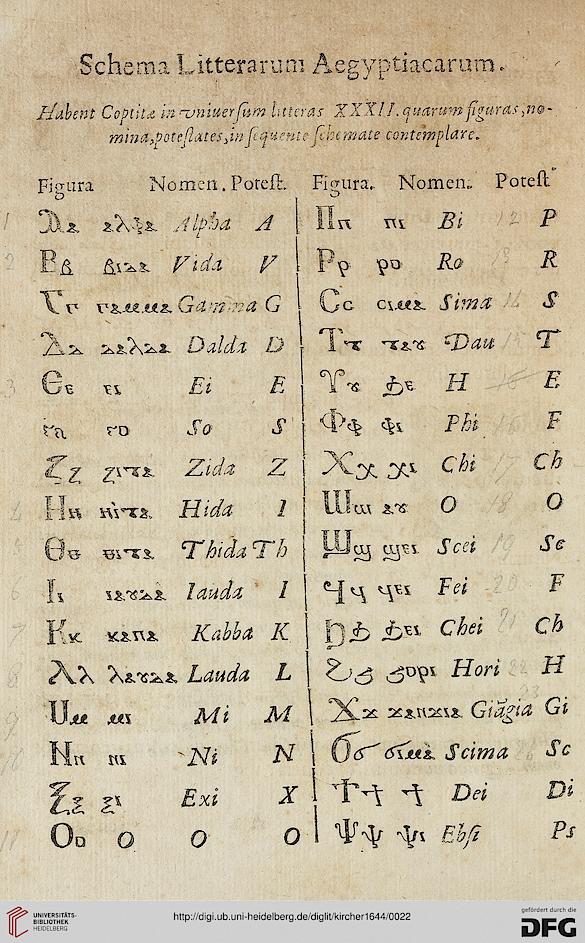 Schema Litterarum Aegyptiacarum.
Habent Coptitæ in vniuersum litteras XXXII. quarum figuras, no-
mina, potestates, in sequente schemate contemplare.
Figura Nomen. Potest.
Ⲁⲁ ⲁⲗⲫⲁ Alpha A
Ⲃⲃ ⲃⲓⲇⲁ Vida V
Ⲅⲅ ⲅⲁⲙⲙⲁ Gamma G
Ⲇⲇ ⲇⲁⲗⲇⲁ Dalda D
Ⲉⲉ ⲉⲓ Ei E
ⲋ ⲋⲟ So S
Ⲍⲍ ⲍⲓⲧⲁ Zida Z
Ⲏⲏ ⲏⲓⲧⲁ Hida I
Ⲑⲑ ⲑⲓⲧⲁ Thida Th
Ⲓⲓ ⲓⲁⲩⲇⲁ Iauda I
Ⲕⲕ ⲕⲁⲡⲁ Kabba K
Ⲗⲗ ⲗⲁⲩⲇⲁ Lauda L
Ⲙⲙ ⲙⲓ Mi M
Ⲛⲛ ⲛⲓ Ni N
Ⲝⲝ ⲝⲓ Exi X
Ⲟⲟ O O O
Figura. Nomen. Potest
Ⲡⲡ ⲡⲓ Bi P
Ⲣⲣ ⲣⲟ Ro R
Ⲥⲥ ⲥⲓⲙⲁ Sima S
Ⲧⲧ ⲧⲁⲩ Dau T
Ⲩⲩ ϧⲉ H E
Ⲫⲫ ⲫⲓ Phi F
Ⲭⲭ ⲭⲓ Chi Ch
Ⲱⲱ ⲁⲩ O O
Ϣϣ ϣⲉⲓ Scei Sc
Ϥϥ ϥⲉⲓ Fei F
Ϧϧ ϧⲉⲓ Chei Ch
Ϩϩ ϩⲟⲣⲓ Hori H
Ϫϫ ϫⲁⲛϫⲓⲁ Giãgia Gi
Ϭϭ ϭⲓⲙⲁ Scima Sc
Ϯϯ ϯ Dei Di
Ⲯⲯ ⲯⲓ Ebsi Ps
UNIVERSITÄTS-
BIBLIOTHEK
HEIDELBERG
http://digi.ub.uni-heidelberg.de/diglit/kircher1644/0022
gefördert durch die
DFG